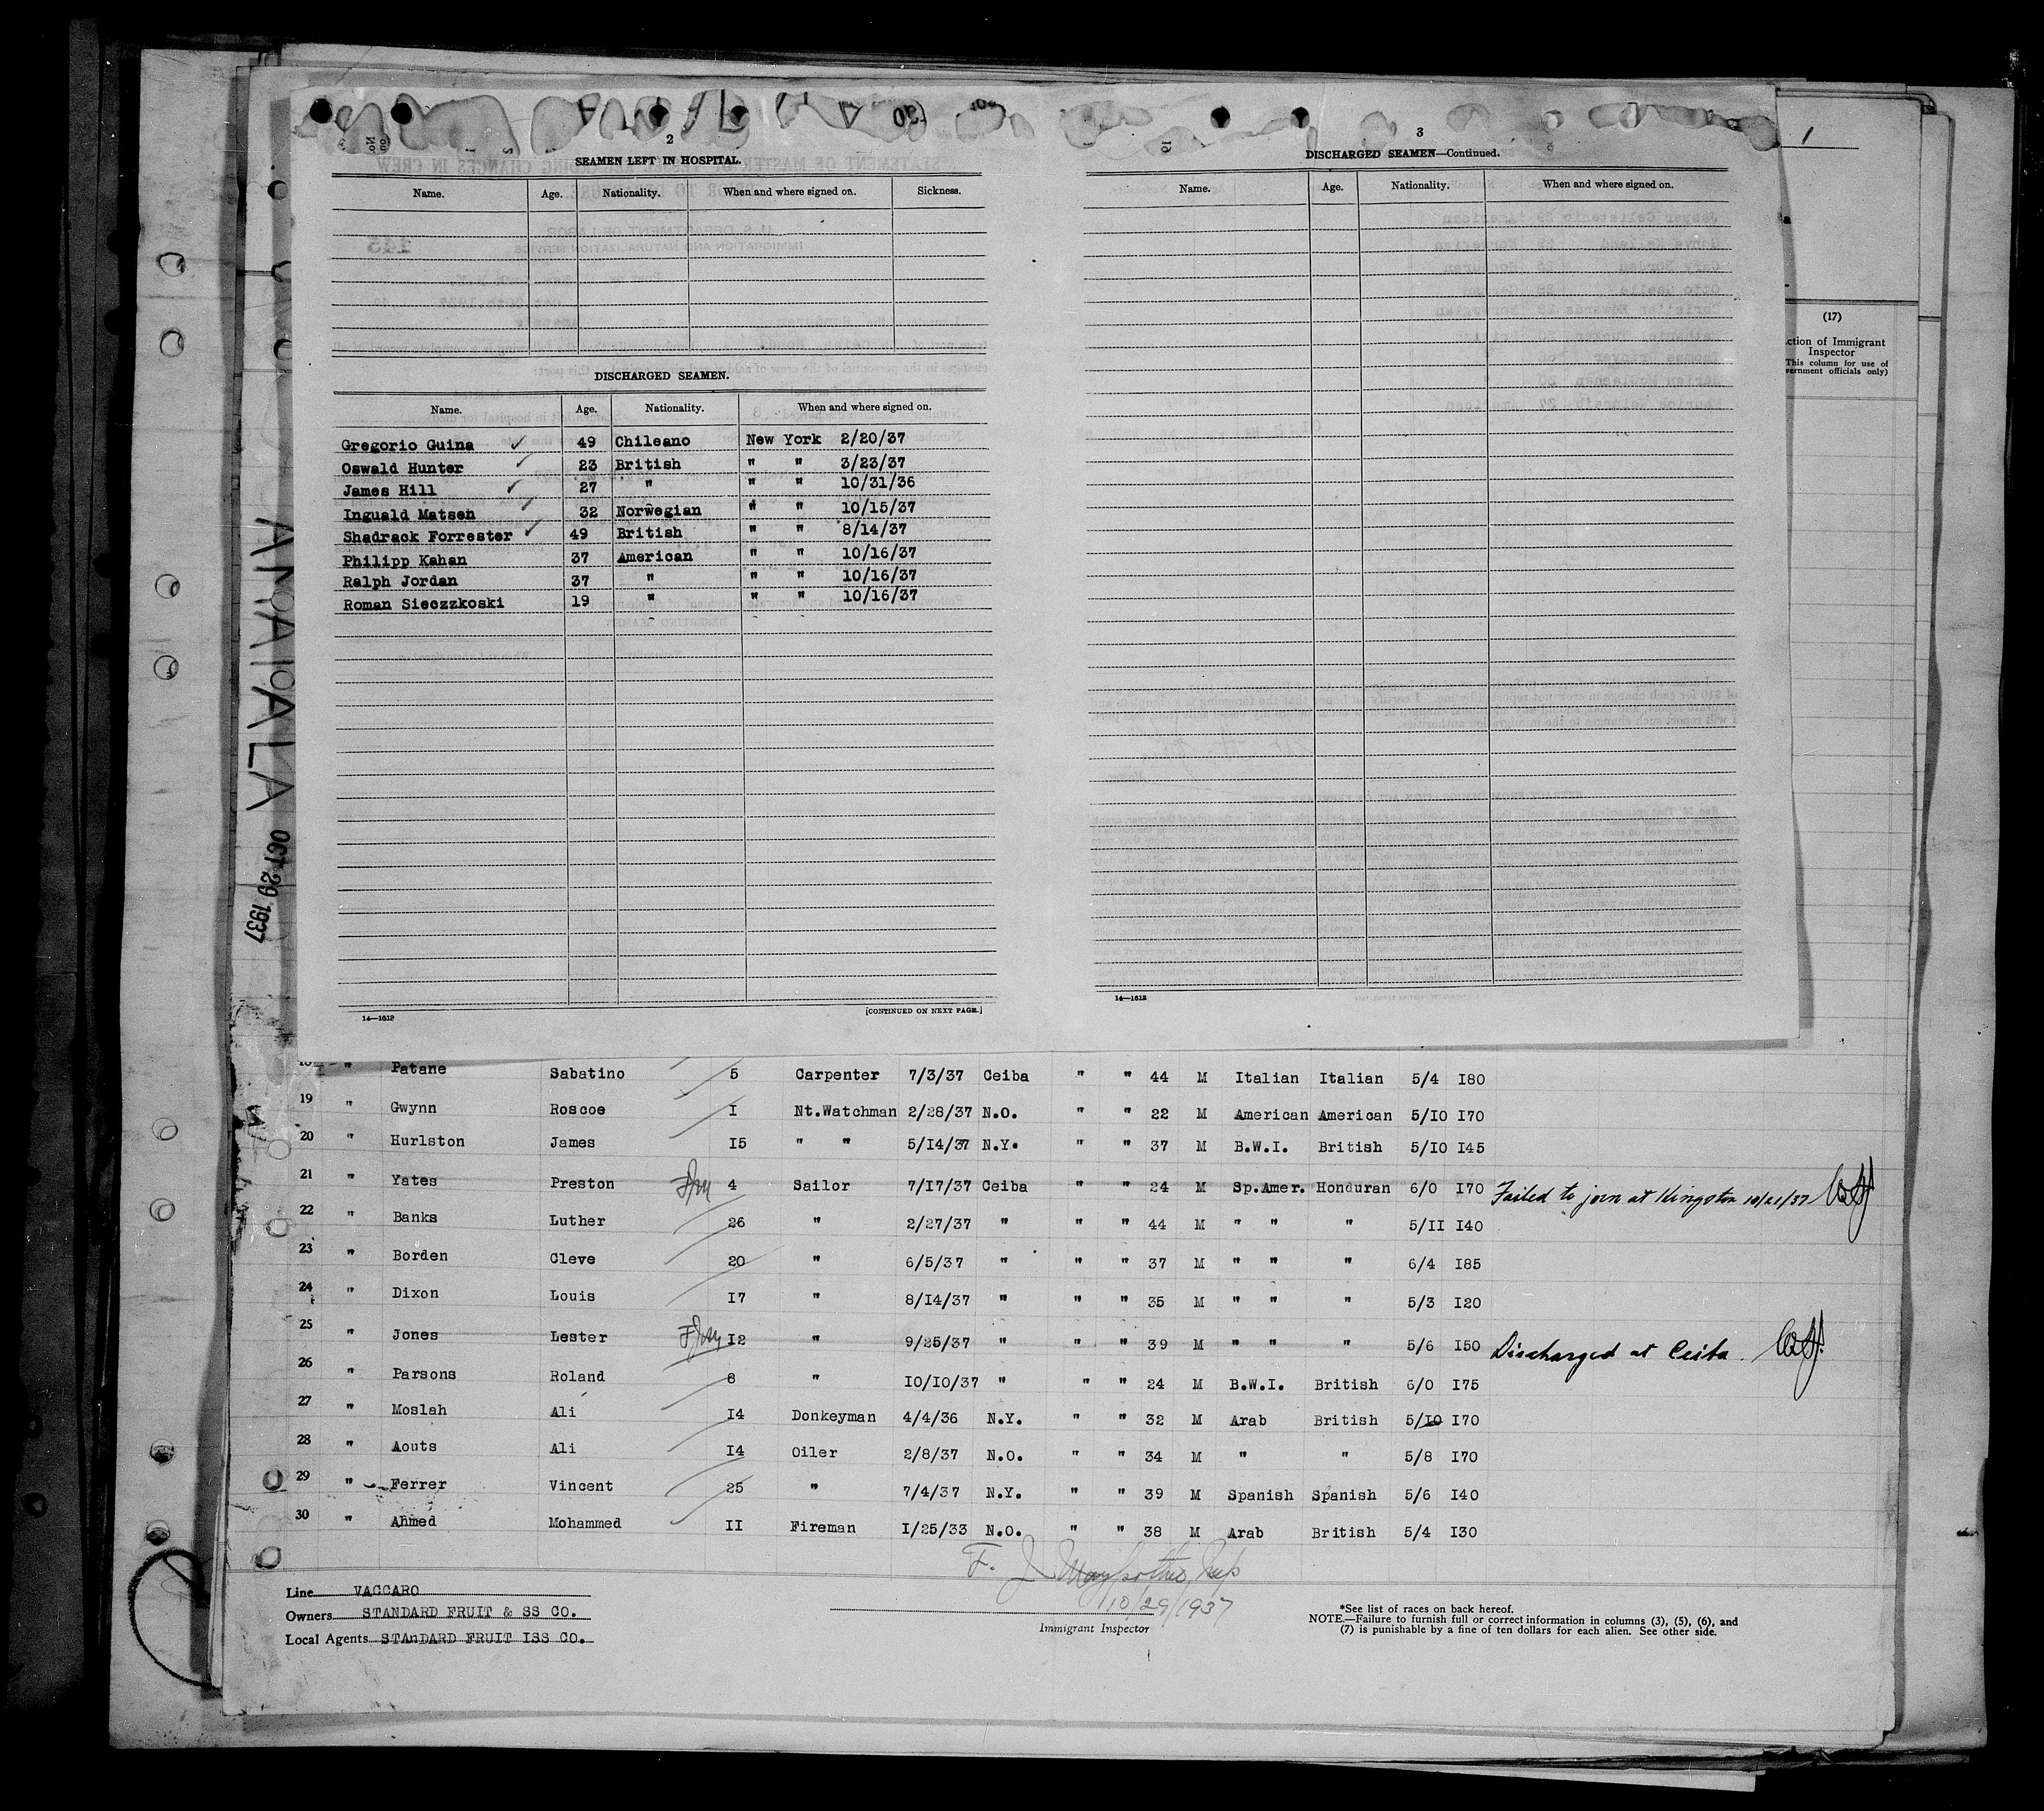 2
SEAMEN LEFT IN HOSPITAL.
Name. Age. Nationality. When and where signed on. Sickness.
DISCHARGED SEAMEN.
Name. Age. Nationality. When and where signed on.
Gregorio Guina ✓ 49 Chileano New York 2/20/37
Oswald Hunter ✓ 23 British " " 3/23/37
James Hill ✓ 27 " " " 10/31/36
Inguald Matsen ✓ 32 Norwegian " " 10/15/37
Shadrack Forrester ✓ 49 British " " 8/14/37
Philipp Kahan 37 American " " 10/16/37
Ralph Jordan 37 " " " 10/16/37
Roman Sieczzkoski 19 " " " 10/16/37
14—1612 [CONTINUED ON NEXT PAGE.]
3
DISCHARGED SEAMEN—Continued.
Name. Age. Nationality. When and where signed on.
14—1612
1
(17)
ction of Immigrant
Inspector
This column for use of
vernment officials only)
AMAPALA
OCT 29 1937
18 " Patane Sabatino 5 Carpenter 7/3/37 Ceiba " " 44 M Italian Italian 5/4 I80
19 " Gwynn Roscoe I Nt.Watchman 2/28/37 N.O. " " 22 M American American 5/I0 I70
20 " Hurlston James I5 " " 5/I4/37 N.Y. " " 37 M B.W.I. British 5/I0 I45
21 " Yates Preston 4 Sailor 7/I7/37 Ceiba " " 24 M Sp.Amer. Honduran 6/0 I70 Failed to join at Kingston 10/21/37
22 " Banks Luther 26 " 2/27/37 " " " 44 M " " " 5/II I40
23 " Borden Cleve 20 " 6/5/37 " " " 37 M " " " 6/4 I85
24 " Dixon Louis I7 " 8/I4/37 " " " 35 M " " " 5/3 I20
25 " Jones Lester I2 " 9/25/37 " " " 39 M " " " 5/6 I50 Discharged at Ceiba.
26 " Parsons Roland 8 " I0/I0/37 " " " 24 M B.W.I. British 6/0 I75
27 " Moslah Ali I4 Donkeyman 4/4/36 N.Y. " " 32 M Arab British 5/I0 I70
28 " Aouts Ali I4 Oiler 2/8/37 N.O. " " 34 M " " 5/8 I70
29 " Ferrer Vincent 25 " 7/4/37 N.Y. " " 39 M Spanish Spanish 5/6 I40
30 " Ahmed Mohammed II Fireman I/25/33 N.O. " " 38 M Arab British 5/4 I30
10/29/1937
Immigrant Inspector
Line VACCARO
Owners STANDARD FRUIT & SS CO.
Local Agents STAnDARD FRUIT ISS CO.
*See list of races on back hereof.
NOTE.—Failure to furnish full or correct information in columns (3), (5), (6), and
(7) is punishable by a fine of ten dollars for each alien. See other side.